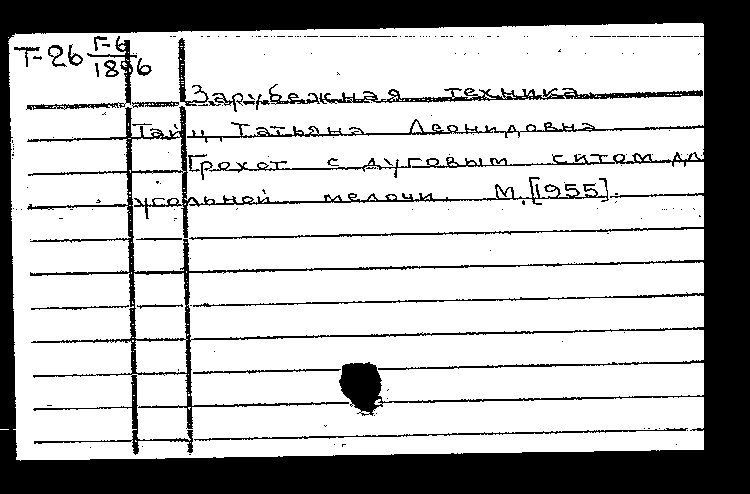 Т-26 Г-6
1896
Зарубежная техника.
Тайц, Татьяна Леонидовна
Грохот с дуговым ситом дл
угольной мелочи. М.[1955].